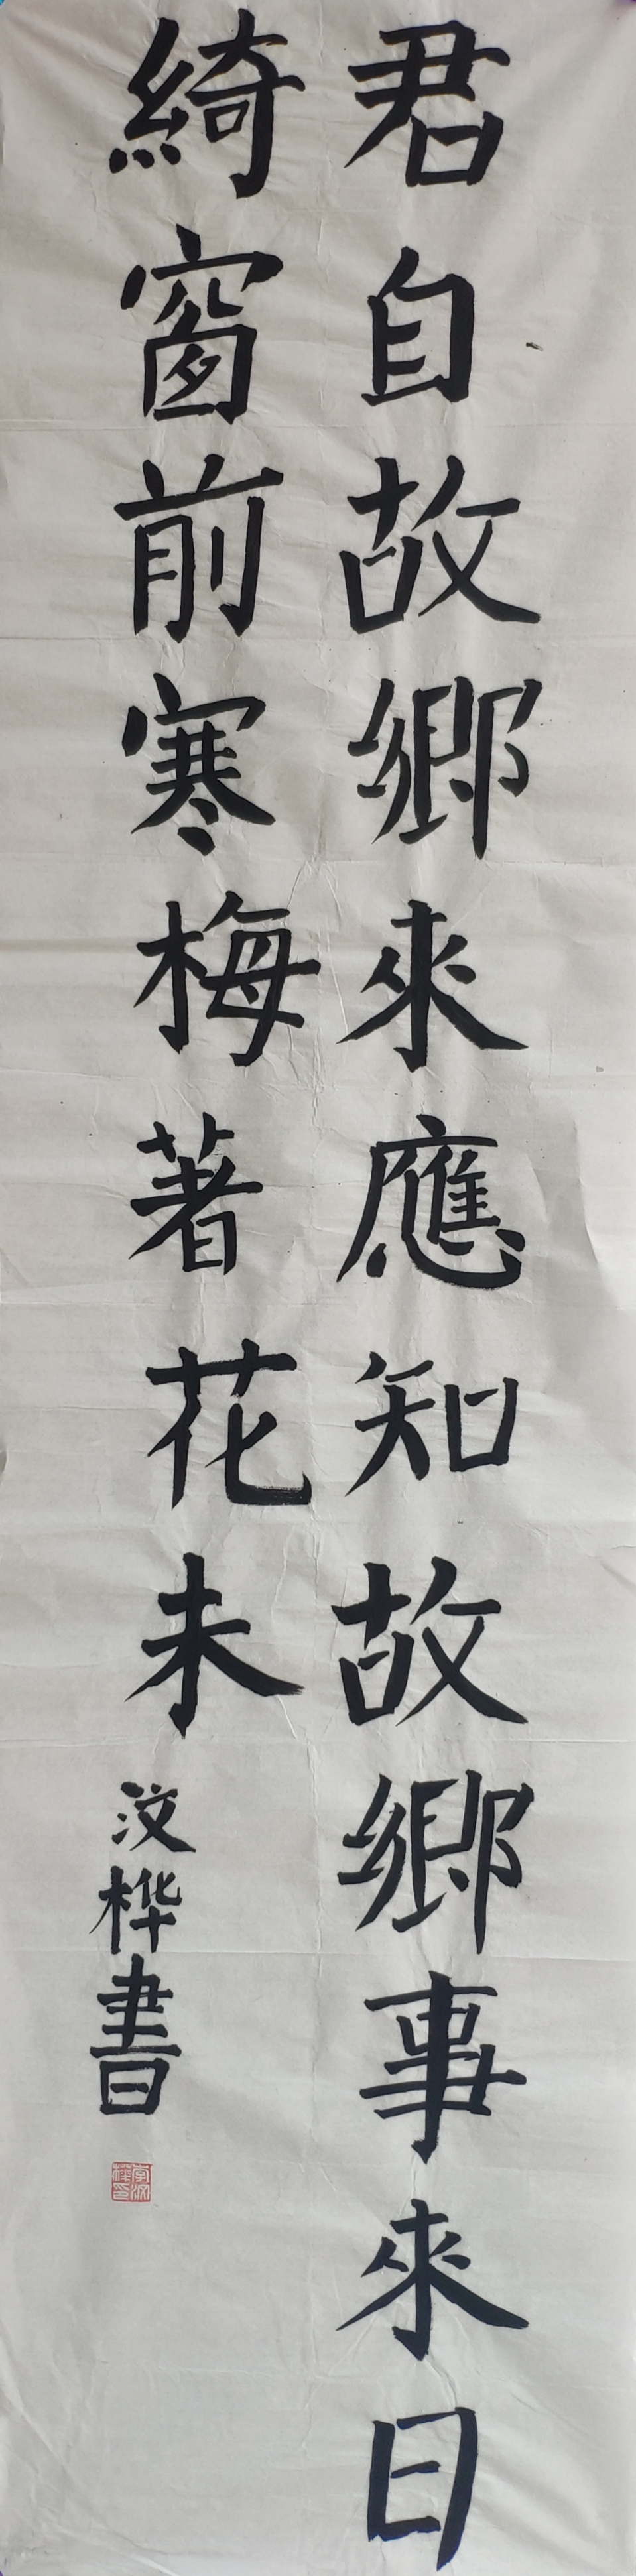 君自故鄉來應知故鄉事來日
綺窗前寒梅著花未
汶桦書